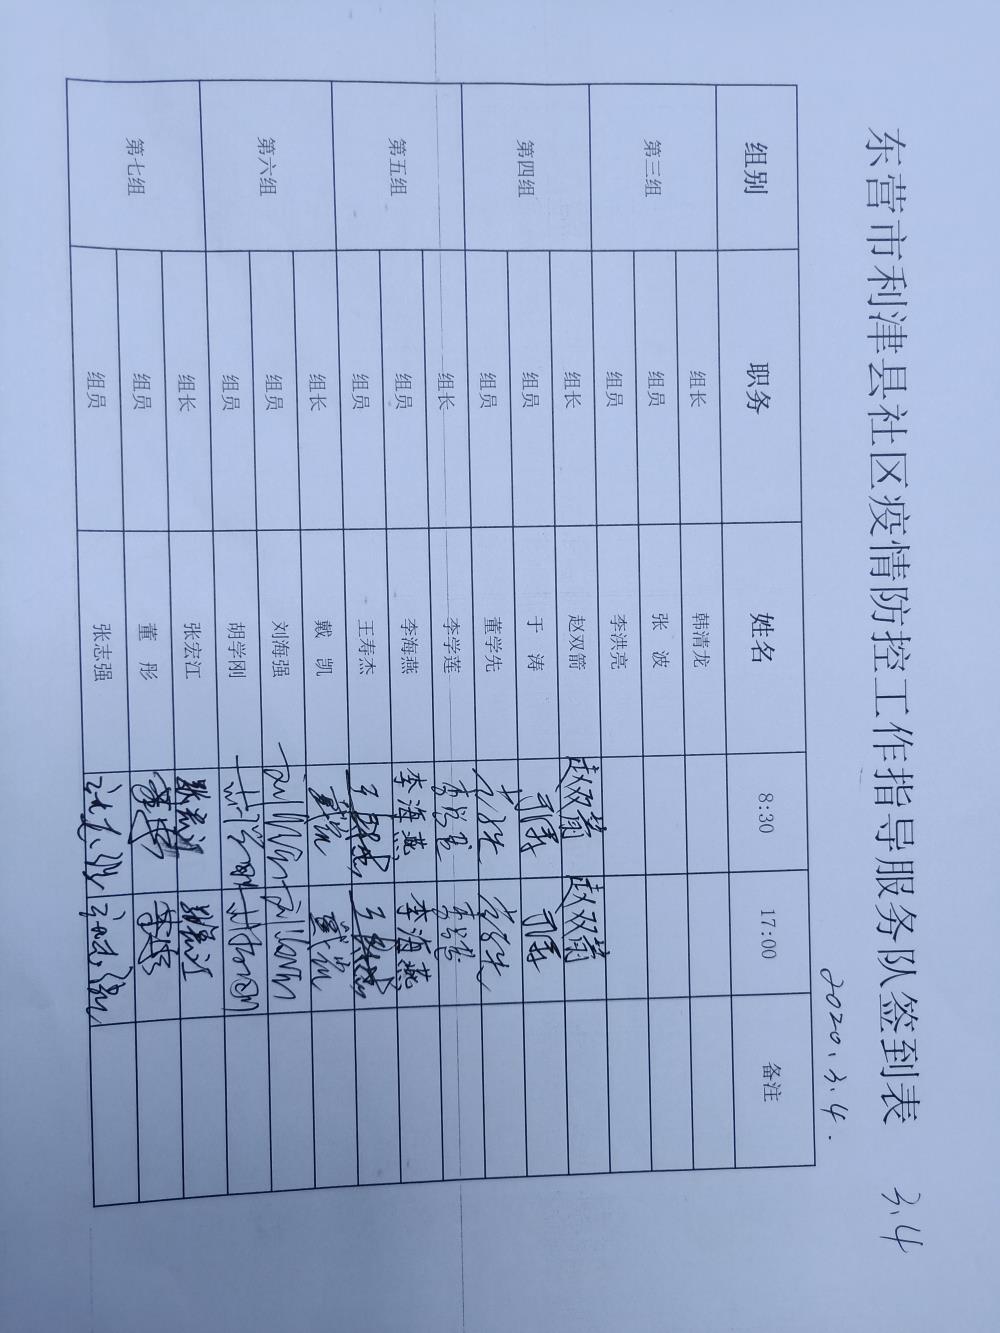 东营市利津县社区疫情防控工作指导服务队签到表 3.4
2020.3.4.
组别 职务 姓名 8:30 17:00 备注
第三组 组长 韩清龙
组员 张 波
组员 李洪亮
第四组 组长 赵双箭 赵双箭 赵双箭
组员 于 涛 于涛 于涛
组员 董学先
第五组 组长 李学莲 李学莲 李学莲
组员 李海燕 李海燕 李海燕
组员 王寿杰
第六组 组长 戴 凯 戴凯 戴凯
组员 刘海强 刘海强 刘海强
组员 胡学刚 胡学刚 胡学刚
第七组 组长 张宏江 张宏江 张宏江
组员 董 彤
组员 张志强 张志强 张志强